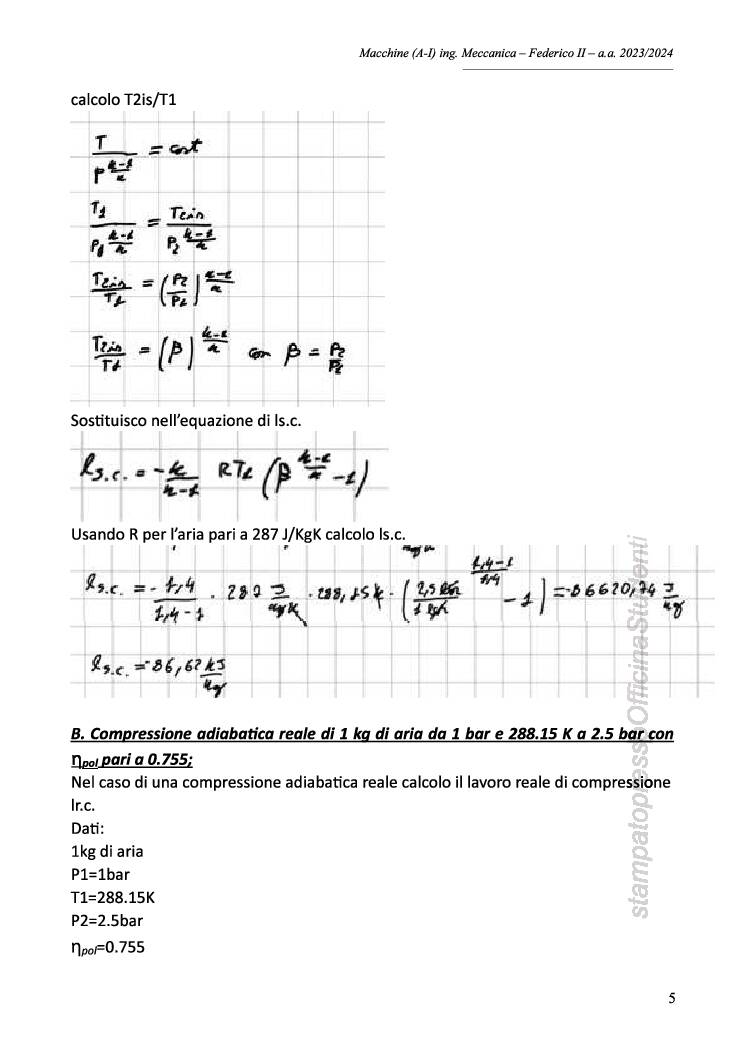 Macchine (A-I) ing. Meccanica – Federico II – a.a. 2023/2024
calcolo T2is/T1
T / P^((k-1)/k) = cost
T1 / P1^((k-1)/k) = T2is / P2^((k-1)/k)
T2is/T1 = (P2/P1)^((k-1)/k)
T2is/T1 = (β)^((k-1)/k) con β = P2/P1
Sostituisco nell'equazione di ls.c.
ls.c. = - k/(k-1) RT1 (β^((k-1)/k) -1)
Usando R per l'aria pari a 287 J/KgK calcolo ls.c.
ls.c. = - 1,4/(1,4-1) · 287 J/kgK · 288,15K · ((2,5 bar/1 bar)^((1,4-1)/1,4) - 1) = -86620,74 J/kg
ls.c. = -86,62 kJ/kg
B. Compressione adiabatica reale di 1 kg di aria da 1 bar e 288.15 K a 2.5 bar con
ηpol pari a 0.755;
Nel caso di una compressione adiabatica reale calcolo il lavoro reale di compressione
lr.c.
Dati:
1kg di aria
P1=1bar
T1=288.15K
P2=2.5bar
ηpol=0.755
5
stampatopressoOfficinaStudenti